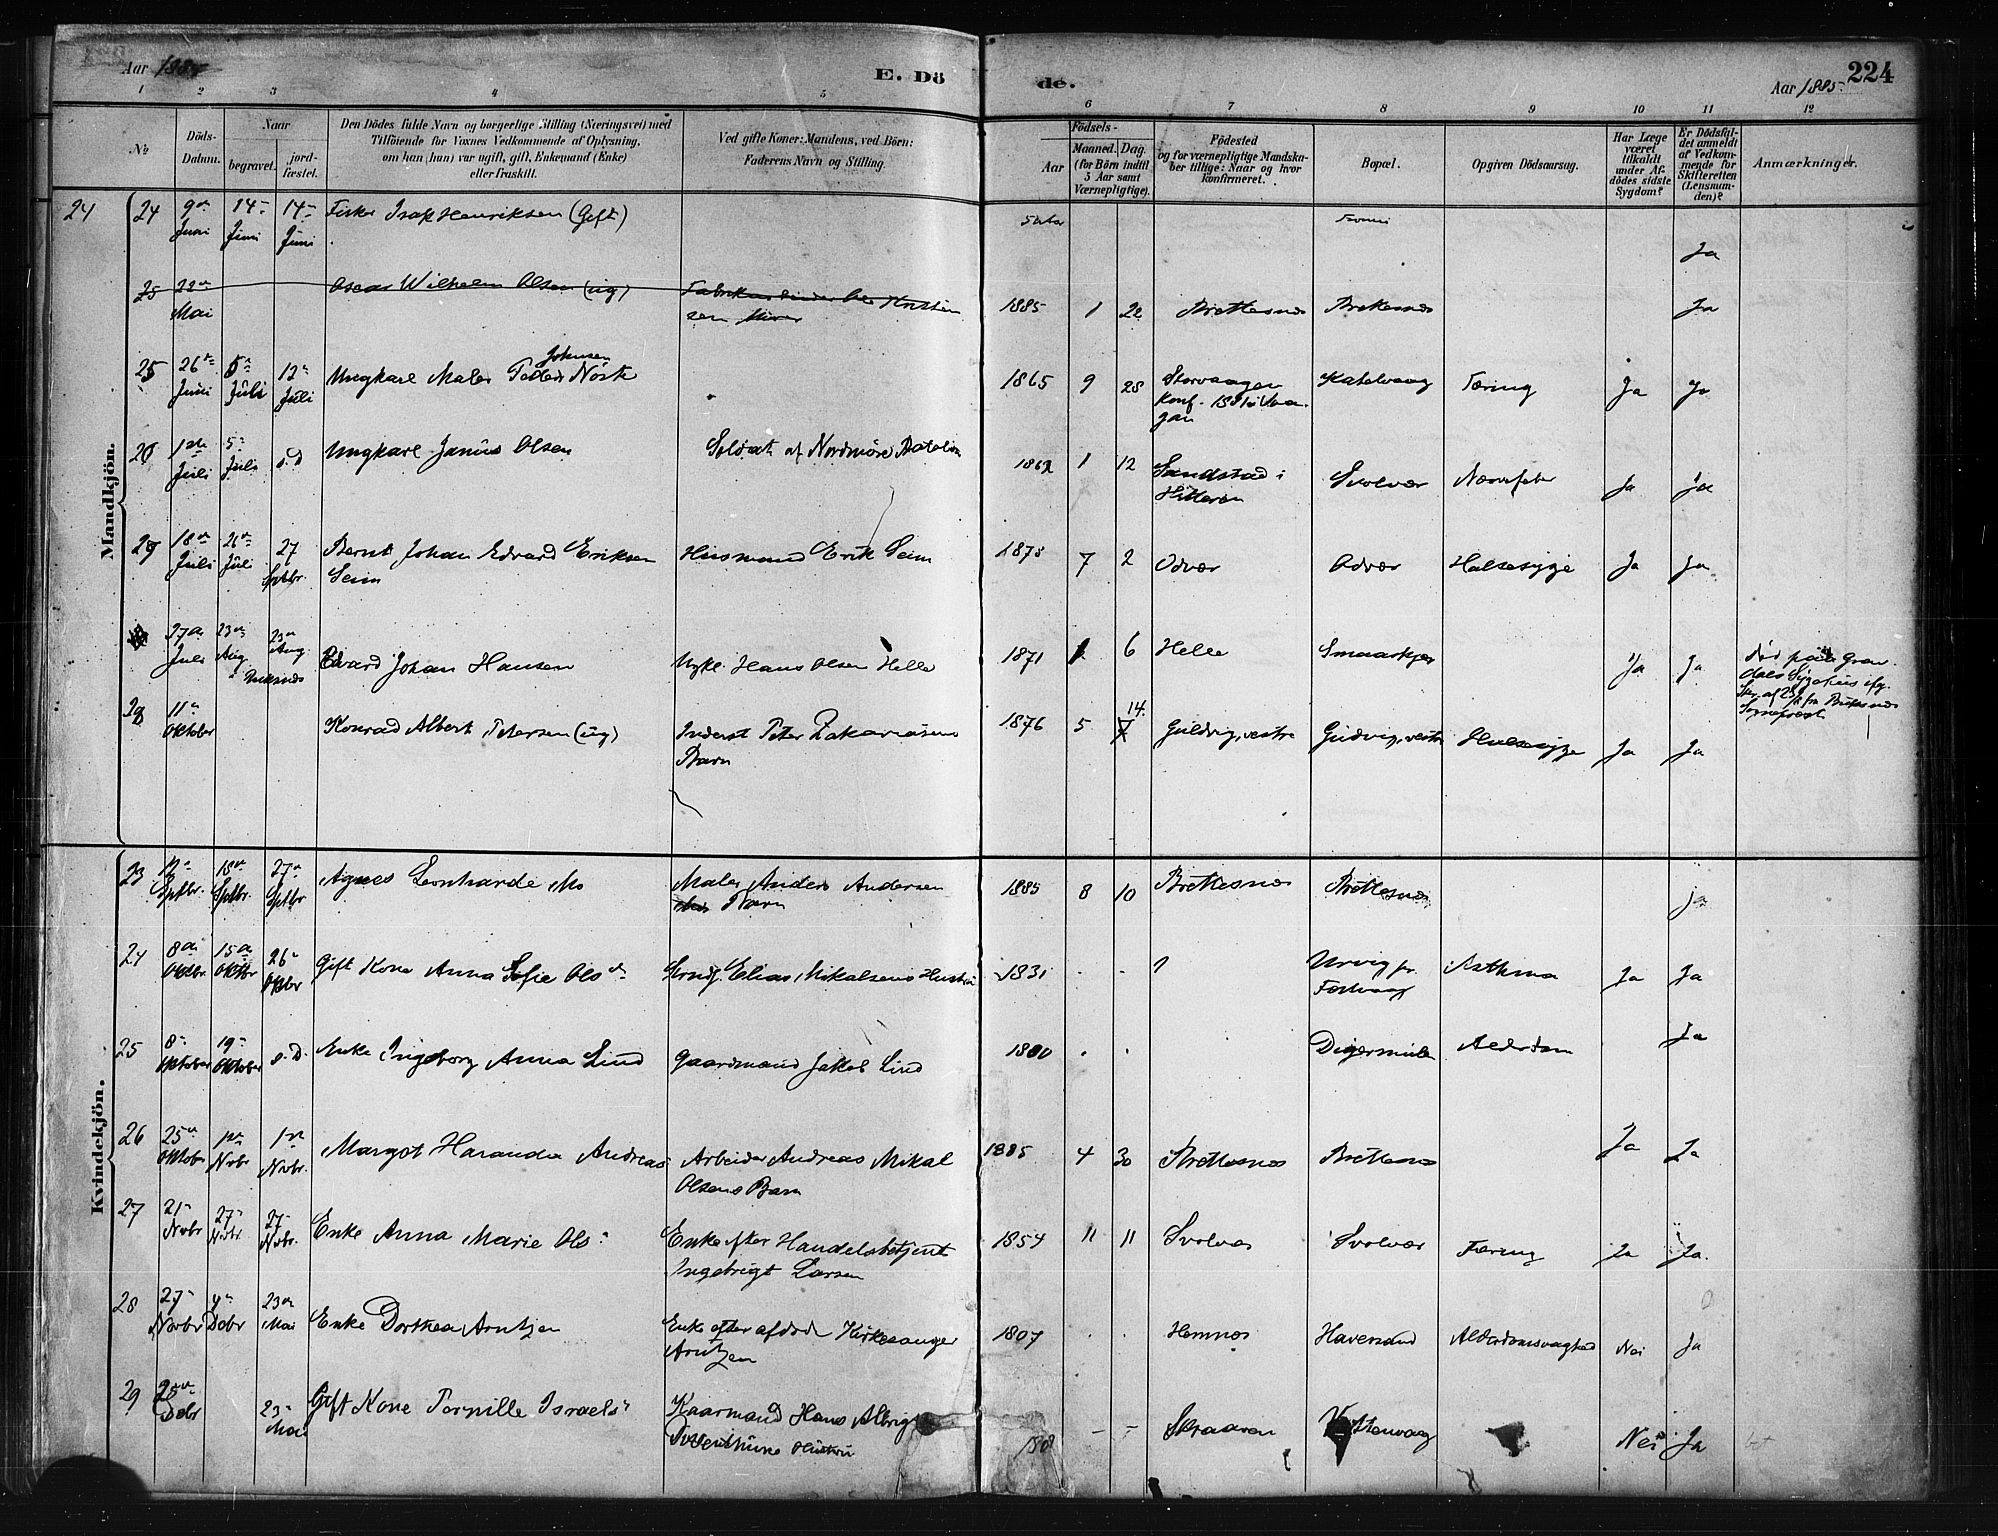 Aar 1885
E. Dö
de.
Aar 1885.
224
1 2 3 4 5 6 7 8 9 10 11 12
No
Döds-Datum.
Naar
begravet.
jord-fæstet.
Den Dödes fulde Navn og borgerlige Stilling (Næringsvei) med
Tilföiende for Voxnes Vedkommende af Oplysning,
om han (hun) var ugift, gift, Enkemand (Enke)
eller fraskilt.
Ved gifte Koner: Mandens, ved Börn:
Faderens Navn og Stilling.
Födsels-
Aar
Maaned. Dag.
(for Börn indtil
5 Aar samt
Værnepligtige).
Födested
og for værnepligtige Mandska-
ber tillige: Naar og hvor
konfirmeret.
Bopæl.
Opgiven Dödsaarsag.
Har Læge
været
tilkaldt
under Af-
dödes sidste
Sygdom?
Er Dödsfal-
det anmeldt
af Vedkom-
mende for
Skifteretten
(Lensman-
den)?
Anmærkninger.
Mandkjön.
24 24 9de Juni 14- Juni 14- Juni Fisker Isak Henriksen (Gift) Ja
25 22de Mai Oscar Wilhelm Olsen (ug) 1885 1 22 Brettesnæs Brettesnæs Ja
25 26de Juni 5te Juli 12te Juli Ungkarl Maler Peder Johnsen Nösk 1865 9 28 Storvaagen
Konf. 1881 i Vaa-
gan Kabelvaag Tæring Ja Ja
26 1ste Juli 5te Juli s.D Ungkarl Janus Olsen Soldat af Nordmöre Batalion 1862 1 12 Sandstad i
Hitteren Svolvær Nervefeber Ja Ja
27 18de Juli 26de Juli 27 Sptbr. Bernt Johan Edvard Eriksen
Seim Husmand Erik Seim 1878 7 2 Odvær Odvær Halssyge Ja Ja
27de Juli 23de Aug 23de Aug Edvard Johan Hansen Hans Olsen Helle 1871 6 Helle Smaaskjær Ja Ja
28 11te Oktober Konrad Albert Petersen (ug) Inderst Peter Zakariasens
Barn 1876 5 14. Guldvig, vestre Guldvig, vestre Halssyge Ja Ja
Kvindekjön.
23 12- Sptbr. 18de Sptbr. 27de Sptbr Agnes Leonharde Mo Maler Anders Andersen
Barn 1885 8 10 Brettesnæs Brettesnæs Ja
24 8de Oktbr 15de Oktbr 26- Oktbr Gift Kone Anna Sofie Olsdr Elias Mikalsens Hustru 1831 - - ? Asthma Ja Ja
25 8- Oktober 19- Oktober s.D. Enke Ingeborg Anna Lind Gaardmand Jakob Lind 1800 Digermulen Alderdom Ja
26 25de Oktob 1ste Novbr 1ste Novbr. Margot Andreas- Arbeider Andreas Mikal
Olsens Barn 1885 4 30 Brettesnæs Brettesnæs Ja Ja
27 21- Novbr 27- Novbr 27- Novbr. Enke Anna Marie Ols- Enke efter Handelsbetjent
Ingebrigt Larsen 1854 11 11 Svolvær Svolvær Tæring Ja Ja.
28 27- Novbr 4de Dcbr 23de Mai Enke Dorthea Arntzen Enke efter afdöd Kirkesanger
Arntzen 1807 - - Hemnæs Havesund Alderdomssvaghed Nei Ja
29 25de Dcbr 23- Mai Gift Kone Pernille Israels- Kaarmand Hans Albrigt
Hustru - - Skraaven Nei Ja